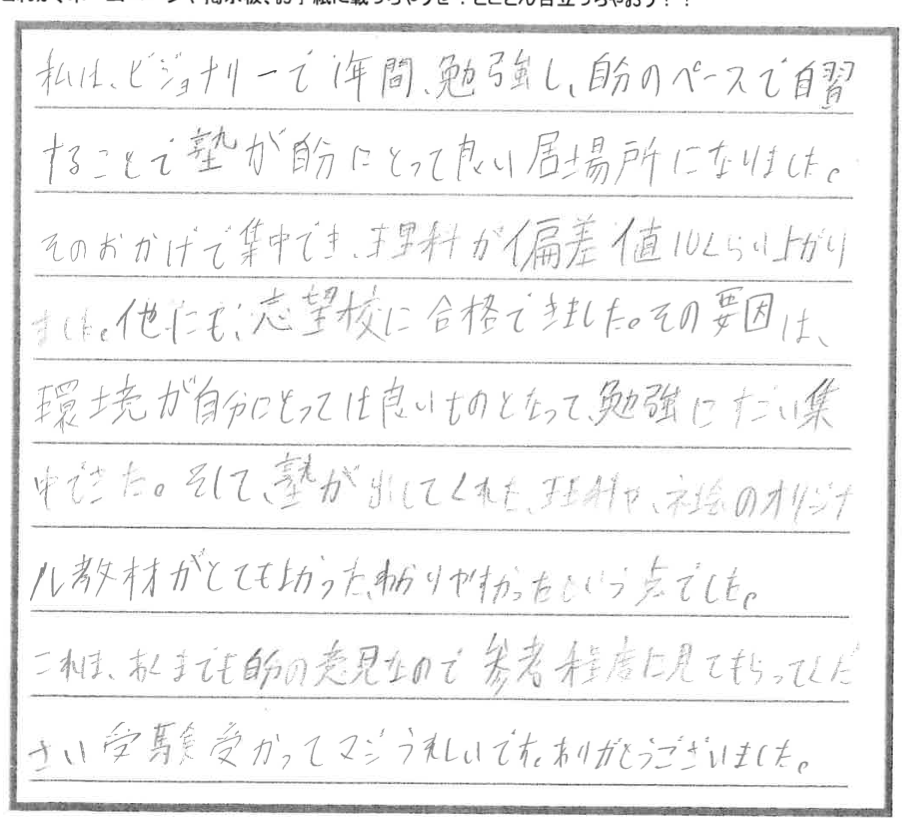 私は、ビジョナリーで1年間、勉強し、自分のペースで自習
することで塾が自分にとって良い居場所になりました。
そのおかげで集中でき、理科が偏差値10くらい上がり
ました。他にも、志望校に合格できました。その要因は、
環境が自分にとっては良いものとなって、勉強にすごい集
中できた。そして、塾が出してくれた、理科や、社会のオリジナ
ル教材がとてもよかった、わかりやすかったという点でした。
これは、あくまでも自分の意見なので参考程度に見てもらってくだ
さい受験受かってマジうれしいです。ありがとうございました。